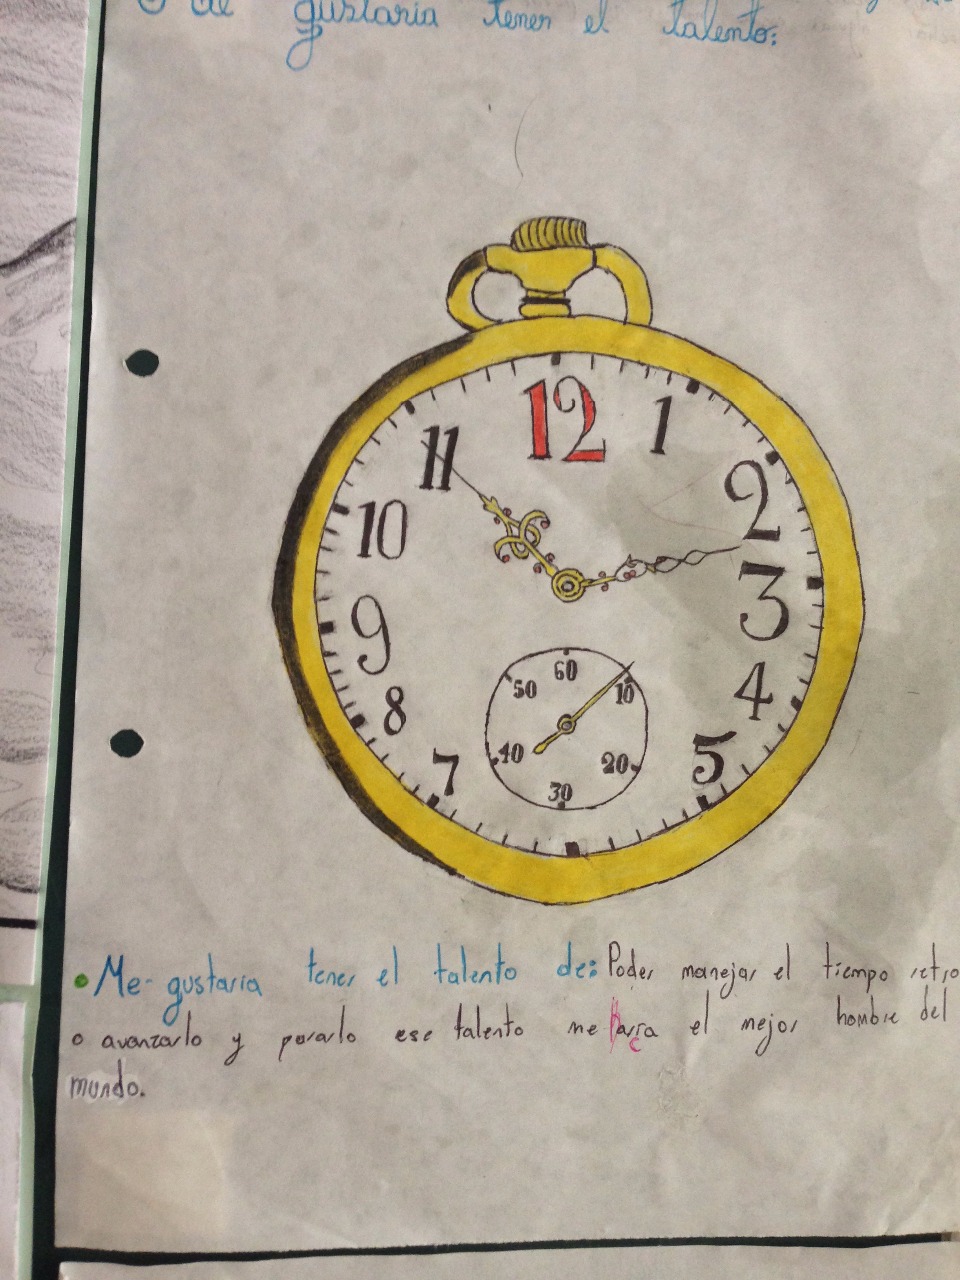 gustaria tener el talento:
12
11 1
10 2
9 3
8 4
7 5
60
50 10
40 20
30
• Me gustaria tener el talento de: Poder manejar el tiempo retro
o avanzarlo y pararlo ese talento me haria el mejor hombre del
mundo.